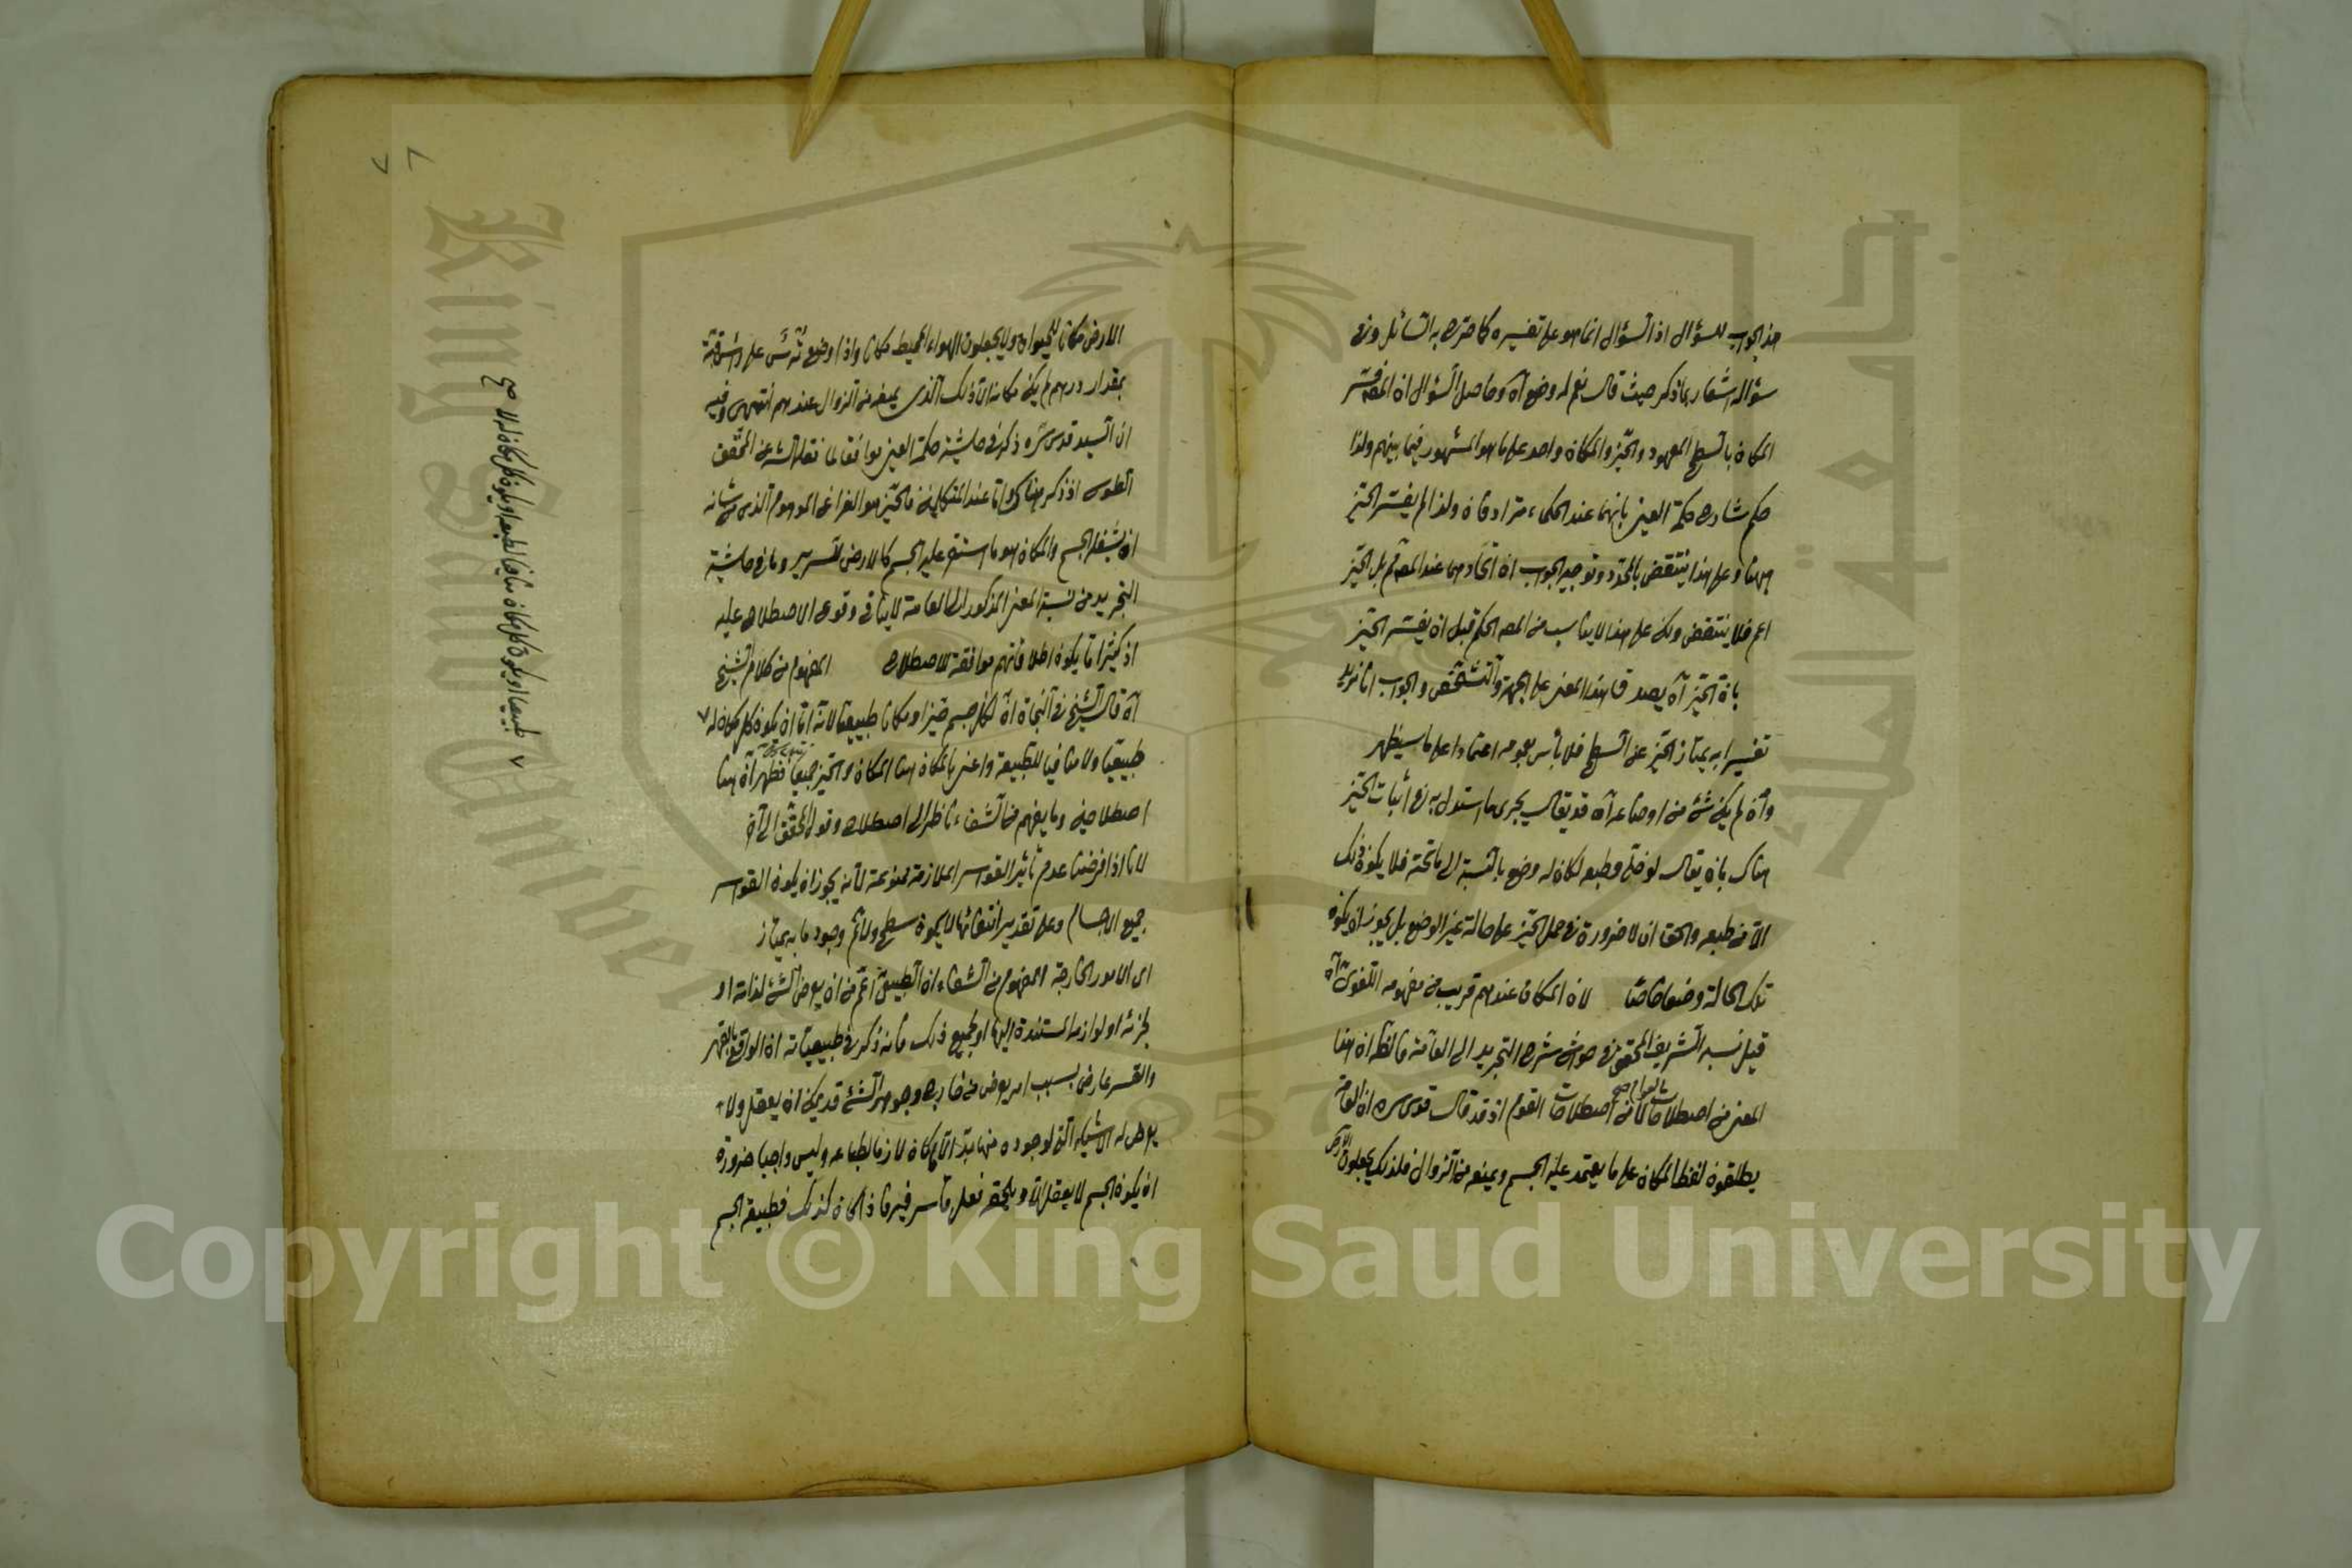 هذا الجواب للسؤال اذ السؤال انما هو على تفسيره كما صرح به السائل وفى
سؤاله اشعار بما ذكر حيث قال نعم له وضع آه وحاصل السؤال ان المصـ فسر
المكان بالسطح المعهود والحيز والمكان واحد على ما هو المشهور فيما بينهم ولذا
حكم شارح حكمة العين بانهما عند الحكماء مترادفان ولذا لم يفسر الحيز
ههنا وعلى هذا ينتقض بالمحدد وتوجيه الجواب ان اتحادهما عند المصـ ثم بل الحيز
اعم فلا ينتقض ولكن على هذا لا يناسب من المصـ الحكم قبل ان يفسر الحيز
بان الحيز آه يصدق هذا المعنى على الجهة والتشخص والجواب انا نريد
تفسيرا به يمتاز الحيز عن السطح فلا بأس بعمومه اعتمادا على ما سيظهر
وان لم يكن شئ من اوضاعه آه قد يقال يجرى ما استدل به فى اثبات الحيز
هناك بان يقال لو خلى وطبعه لكان له وضع بالنسبة الى ما تحته فلا يكون ذلك
الا من طبعه والحق ان لا ضرورة فى حمل الحيز على حالة غير الوضع بل يجوز ان يكون
تلك الحالة وضعا خاصا لان المكان عندهم قريب من مفهومه اللغوى آه
قيل نسبه الشريف المحقق فى حواشى شرح التجريد الى العامة فالظ ان هذا
المعنى من اصطلاحات العوام صح لا من اصطلاحات القوم اذ قد قال قدس سره ان العامة
يطلقون لفظ المكان على ما يعتمد عليه الجسم ويمنعه من النزول فلذلك يجعلون الارض
الارض مكانا للحيوان ولا يجعلون الهواء المحيط مكانا واذا وضع ترس على رأس قبة
بمقدار درهم لم يكن مكانه الا ذلك الذى يمنعه من النزول عندهم انتهى وفيه
ان السيد قدس سره ذكر فى حاشية حكمة العين موافقا لما نقله الشـ عن المحقق
الطوسى اذ ذكر هناك واما عند المتكلمين فالحيز هو الفراغ الموهوم الذى من شانه
ان يشغله الجسم والمكان هو ما استقر عليه الجسم كالارض للسرير وما فى حاشية
التجريد من نسبة المعنى المذكور الى العامة لا ينافى وقوع الاصطلاح عليه
اذ كثيرا ما يكون اطلاقاتهم موافقة للاصطلاح المفهوم من كلام الشيخ
آه قال الشيخ فى النجاة ان لكل جسم حيزا ومكانا طبيعيا لانه اما ان يكون كل مكان له ٧
طبيعيا ولا منافيا للطبيعة واعنى بالمكان هنا المكان والحيز جميعا فظهر ان هنا
اصطلاحين وما يفهم من الشفاء ناظر الى اصطلاح وقول المحقق الى آخر
لانا اذا فرضنا عدم تأثير القواسر الملازمة ممنوعة لانه يجوز ان يكون القواسر
جميع الاجسام وعلى تقدير انتفائها لا يكون سطح ولا ثم وجود ما به يمتاز
اى الامور الخارجة المفهوم من الشفاء ان الطبيعى اعم من ان يعرض الشئ لذاته او
لجزئه او لوازمه المستندة اليها او لجميع ذلك فانه ذكر فى طبيعياته ان الواقع بالقهر
والقسر عارض بسبب امر يعرض من خارج وجوهر الشئ قد يمكن ان يعقل ولا
يعرض له الاشياء التى لوجوده منها بد الا ما كان لازما لطباعه وليس واجبا ضرورة
ان يكون الجسم لا يعقل الا ويلحقه فعل قاسر فيه فاذا كان كذلك فطبيعة الجسم
٧ طبيعيا او يكون كل مكان منافيا لطبعه او يكون كل مكان له لا صح
Copyright © King Saud University